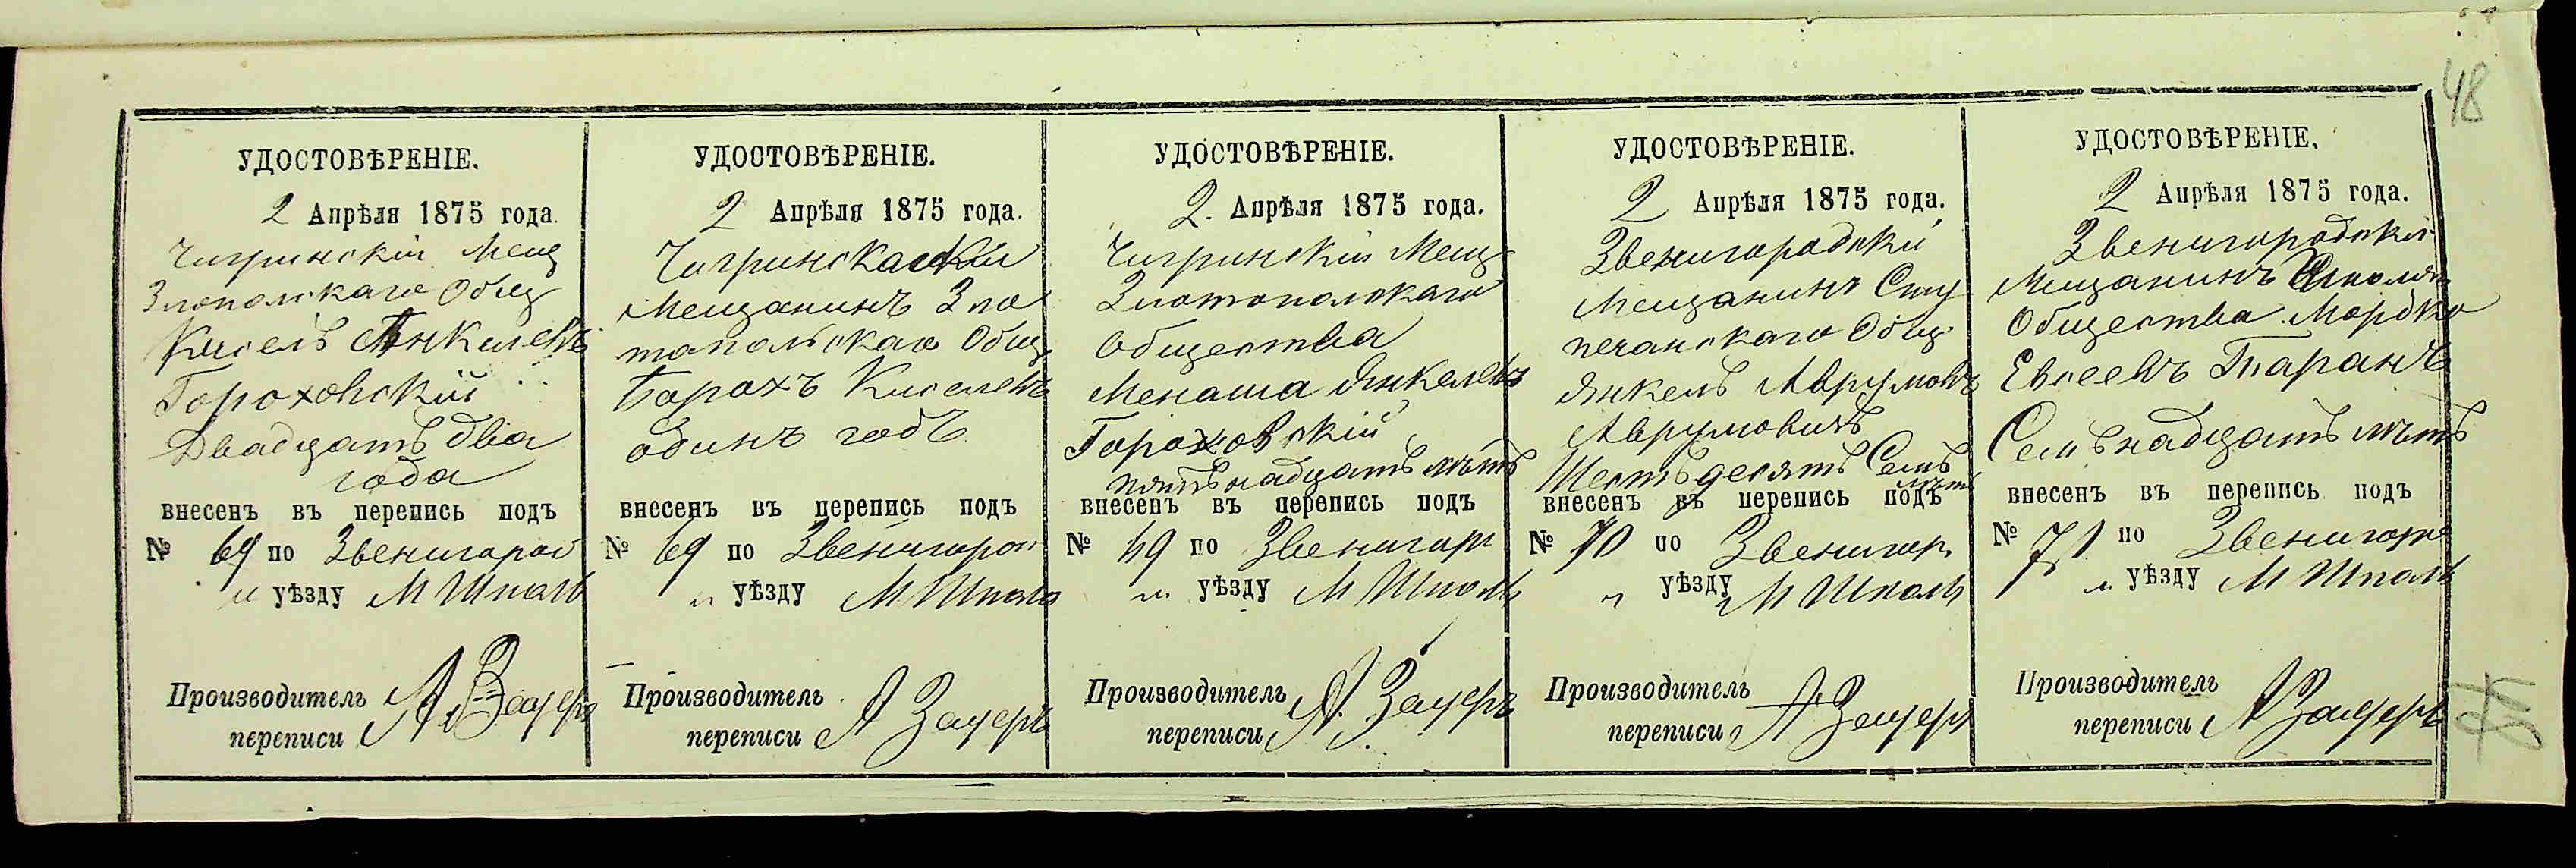 48
УДОСТОВѢРЕНІЕ.
2 Апрѣля 1875 года.
Чигринскій Мещ
Злопольскаго Общ
Кисель Янкелевъ
Гороховскій
Двадцать два
года
внесенъ въ перепись подъ
№ 69 по Звенигород
м уѣзду М Шполь
Производитель А Зауеръ
переписи
УДОСТОВѢРЕНІЕ.
2 Апрѣля 1875 года.
Мещанинъ Зло
топольскаго Общ
Борохъ Киселевъ
одинъ годъ
внесенъ въ перепись подъ
№ 69 по Звенигород
м уѣзду М Шпола
Производитель А Зауеръ
переписи
УДОСТОВѢРЕНІЕ.
2. Апрѣля 1875 года.
Чигринскій Мещ
Златопольскаго
Общества
Менаша Янкелевъ
Гороховскій
пятьнадцать лѣтъ
внесенъ въ перепись подъ
№ 69 по Звенигор
м уѣзду М Шполь
Производитель А. Зауеръ
переписи
УДОСТОВѢРЕНІЕ.
2 Апрѣля 1875 года.
Звенигородскій
Мещанинъ
Общ
Янкель Аврумовъ
Аврумовичъ
Шестьдесятъ Семь
лѣтъ
внесенъ въ перепись подъ
№ 70 по Звенигор
м уѣзду М Шполь
Производитель А Зауеръ
переписи
УДОСТОВѢРЕНІЕ.
2 Апрѣля 1875 года.
Звенигородскій
Мещанинъ
Общества Мордко
Евсеевъ Таранъ
Семьнадцать лѣтъ
внесенъ въ перепись подъ
№ 71 по Звенигоро
м уѣзду М Шполь
Производитель А Зауеръ
переписи